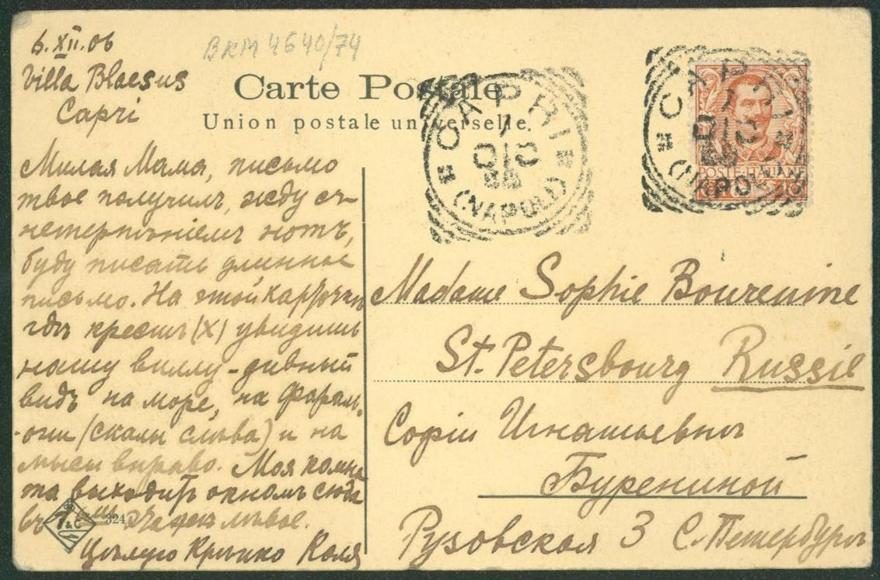 6.XII.06
BKM 4640/74
Villa Blaesus
Capri
Carte Postale
Union postale universelle.
CAPRI
(NAPOLI)
CAPRI
(NAPOLI)
POSTE ITALIANE
Милая Мама, письмо
твое получилъ, жду съ не-
нетерпѣніемъ нотъ,
буду писать длинное
письмо. На этой карточкѣ
гдѣ крестъ (x) увидишь
нашу виллу - дивный
видъ на море, на Фаральо-
они (скалы слѣва) и на
мысы вправо. Моя комна-
та выходитъ окномъ сюда
въ
лѣвое.
Цѣлую крѣпко Коля
324
Madame Sophie Bourenine
St. Petersbourg Russie
Софіи Игнатьевнѣ
Бурениной
Рузовская 3 С. Петербургъ